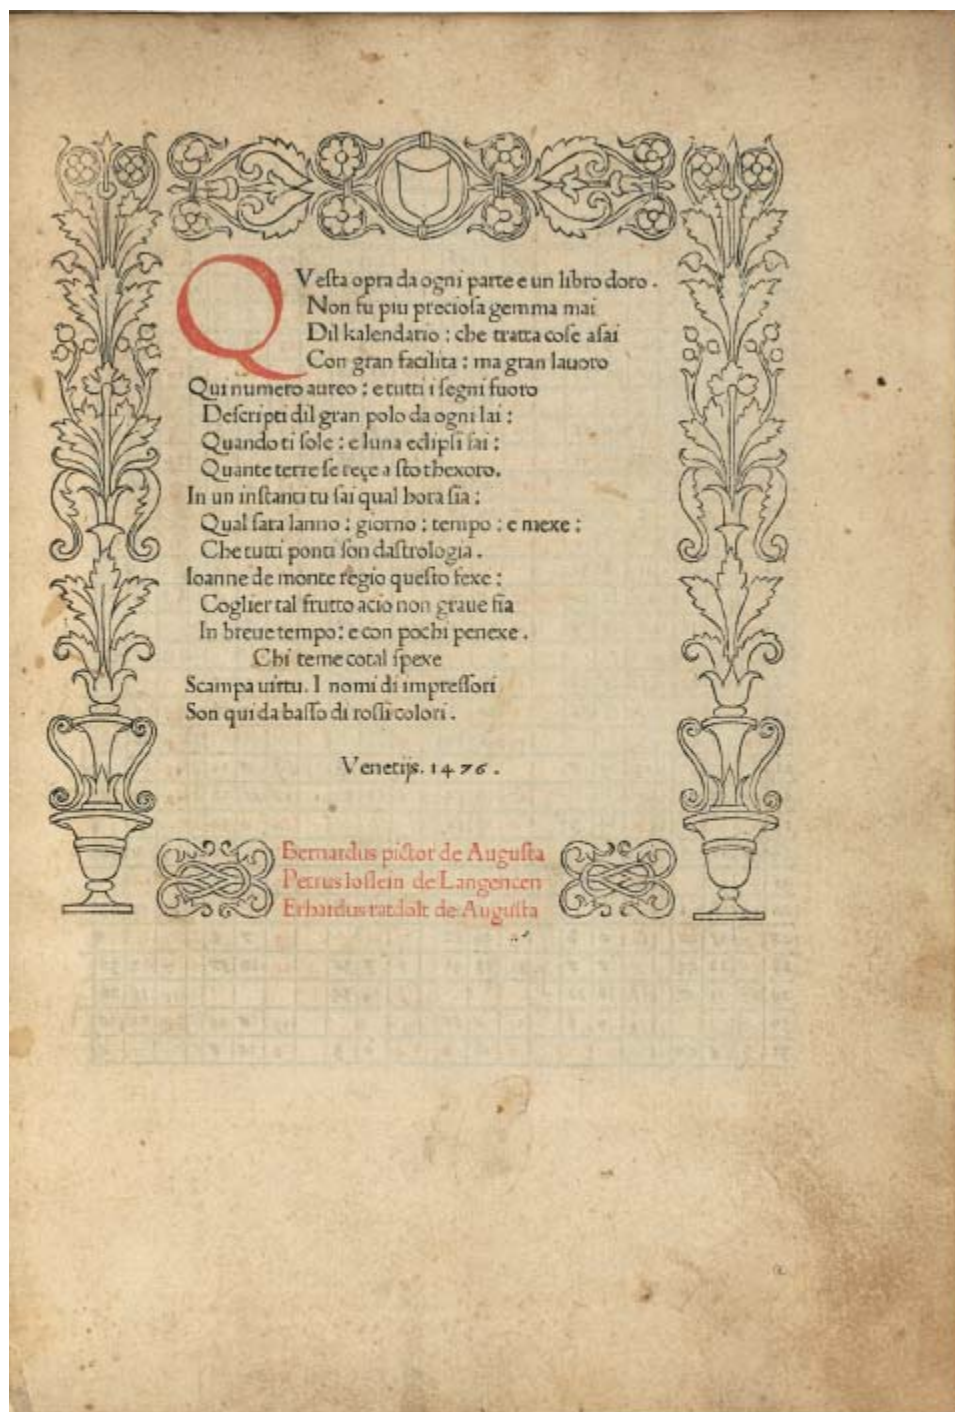 QVeſta opra da ogni parte e un libro doro.
Non fu piu precioſa gemma mai
Dil kalendario: che tratta coſe aſai
Con gran facilita: ma gran lauoro
Qui numero aureo: e tutti i ſegni fuoro
Deſcripti dil gran polo da ogni lai:
Quando ti ſole: e luna eclipſi fai:
Quante terre ſe reçe a ſto thexoro.
In un inſtanti tu ſai qual hora ſia:
Qual ſara lanno: giorno: tempo: e mexe:
Che tutti ponti ſon daſtrologia.
Ioanne de monte regio queſto fexe:
Coglier tal frutto acio non graue ſia
In breue tempo: e con pochi penexe.
Chi teme cotal ſpexe
Scampa uirtu. I nomi di impreſſori
Son qui da baſſo di roſſi colori.
Venetijs. 1476.
Bernardus pictor de Auguſta
Petrus loſlein de Langencen
Erhardus ratdolt de Auguſta